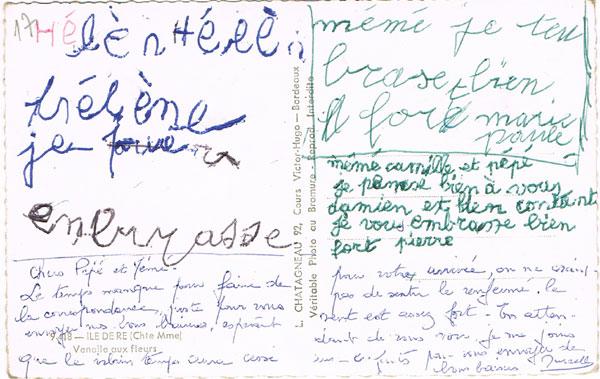 17
Hé
lèn Hélèn
Hélène
je
embrasse
Chers Pépé et Mémé.
Le temps manque pour faire de
la correspondance, juste pour vous
envoyer nos bons baisers, espérant
9.418 — ILE DE RE (Chte Mme)
Venelle aux fleurs
que le vilain temps aura cessé
L. CHATAGNEAU 92, Cours Victor-Hugo — Bordeaux
Véritable Photo au Bromure - Reprod. Interdite
mémé je ten
brase bien
fort marie
paule
mémé camille et pépé
je panse bien à vous
damien et bien contant
je vous embrasse bien
fort pierre
pour votre arrivée, on ne craint
pas de sentir le renfermé. le
vent est assez fort. En atten-
dant de vous voir, je me joins
pour vous envoyer de
bons baisers